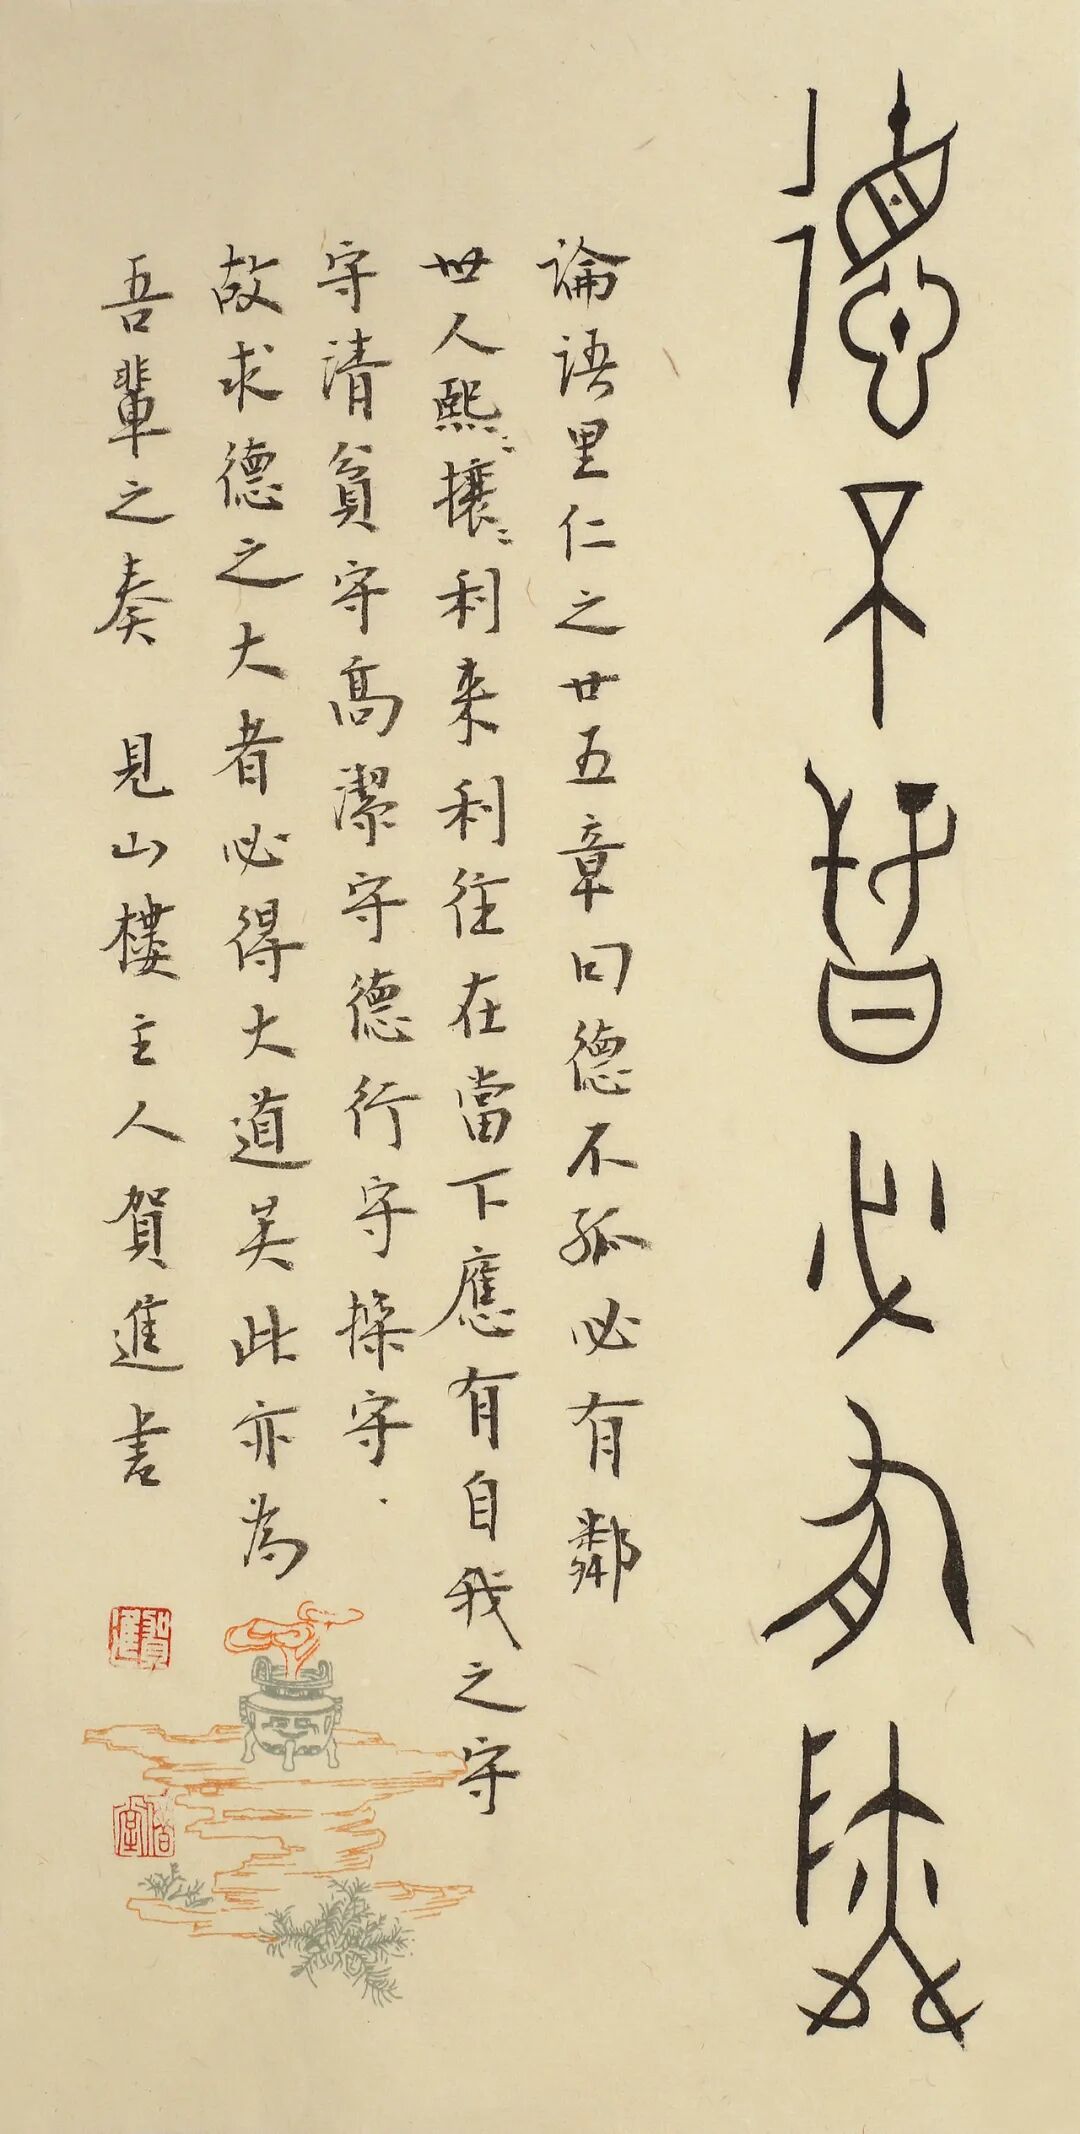 德不孤必有鄰
論語里仁之廿五章曰德不孤必有鄰
世人熙〻攘〻利来利往在當下應有自我之守
守清貧守高潔守德行守操守
故求德之大者必得大道矣此亦為
吾輩之奏 見山樓主人賀進書
賀進